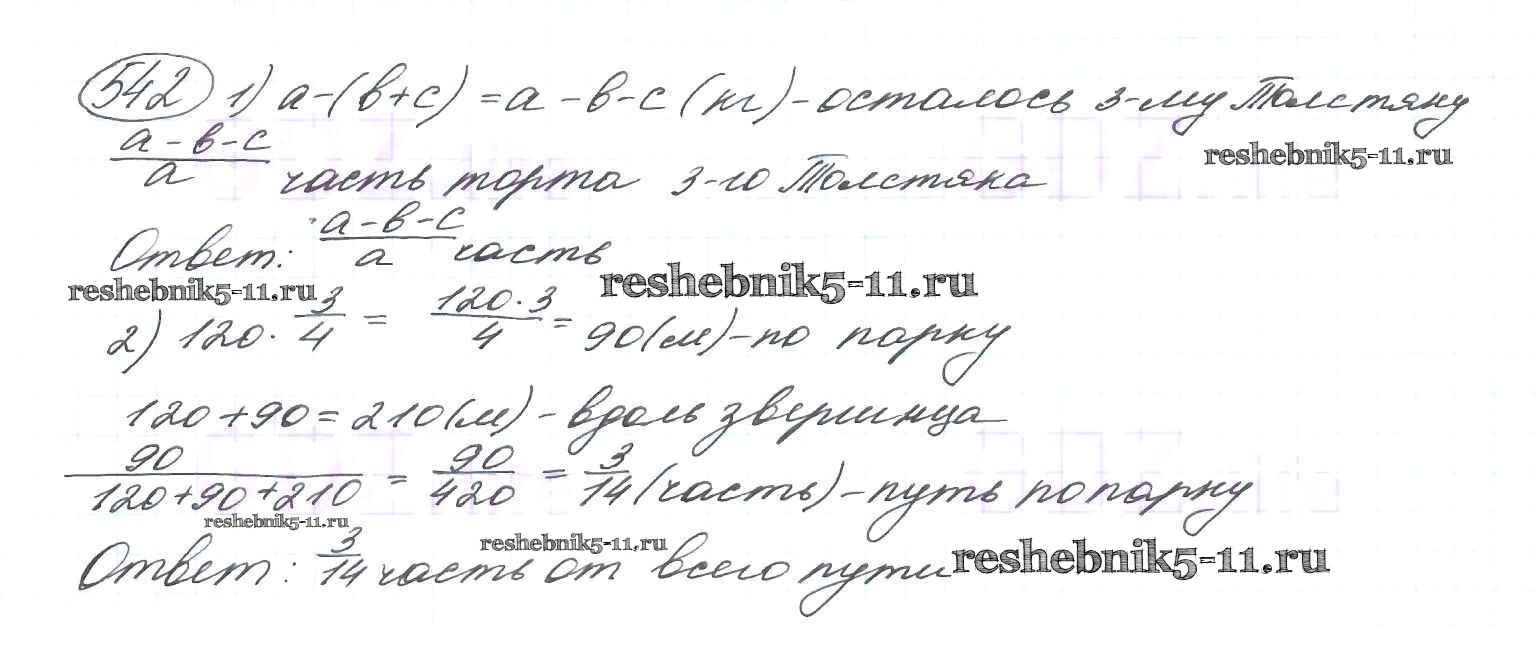 542 1) а-(в+с) = а-в-с (кг) - осталось 3-му Толстяку
reshebnik5-11.ru
а-в-с/а часть торта 3-го Толстяка
Ответ: а-в-с/а часть
reshebnik5-11.ru
reshebnik5-11.ru
2) 120 · 3/4 = 120·3/4 = 90(м) - по парку
120+90=210(м) - вдоль зверинца
90/120+90+210 = 90/420 = 3/14 (часть) - путь по парку
reshebnik5-11.ru
reshebnik5-11.ru
Ответ: 3/14 часть от всего пути
reshebnik5-11.ru